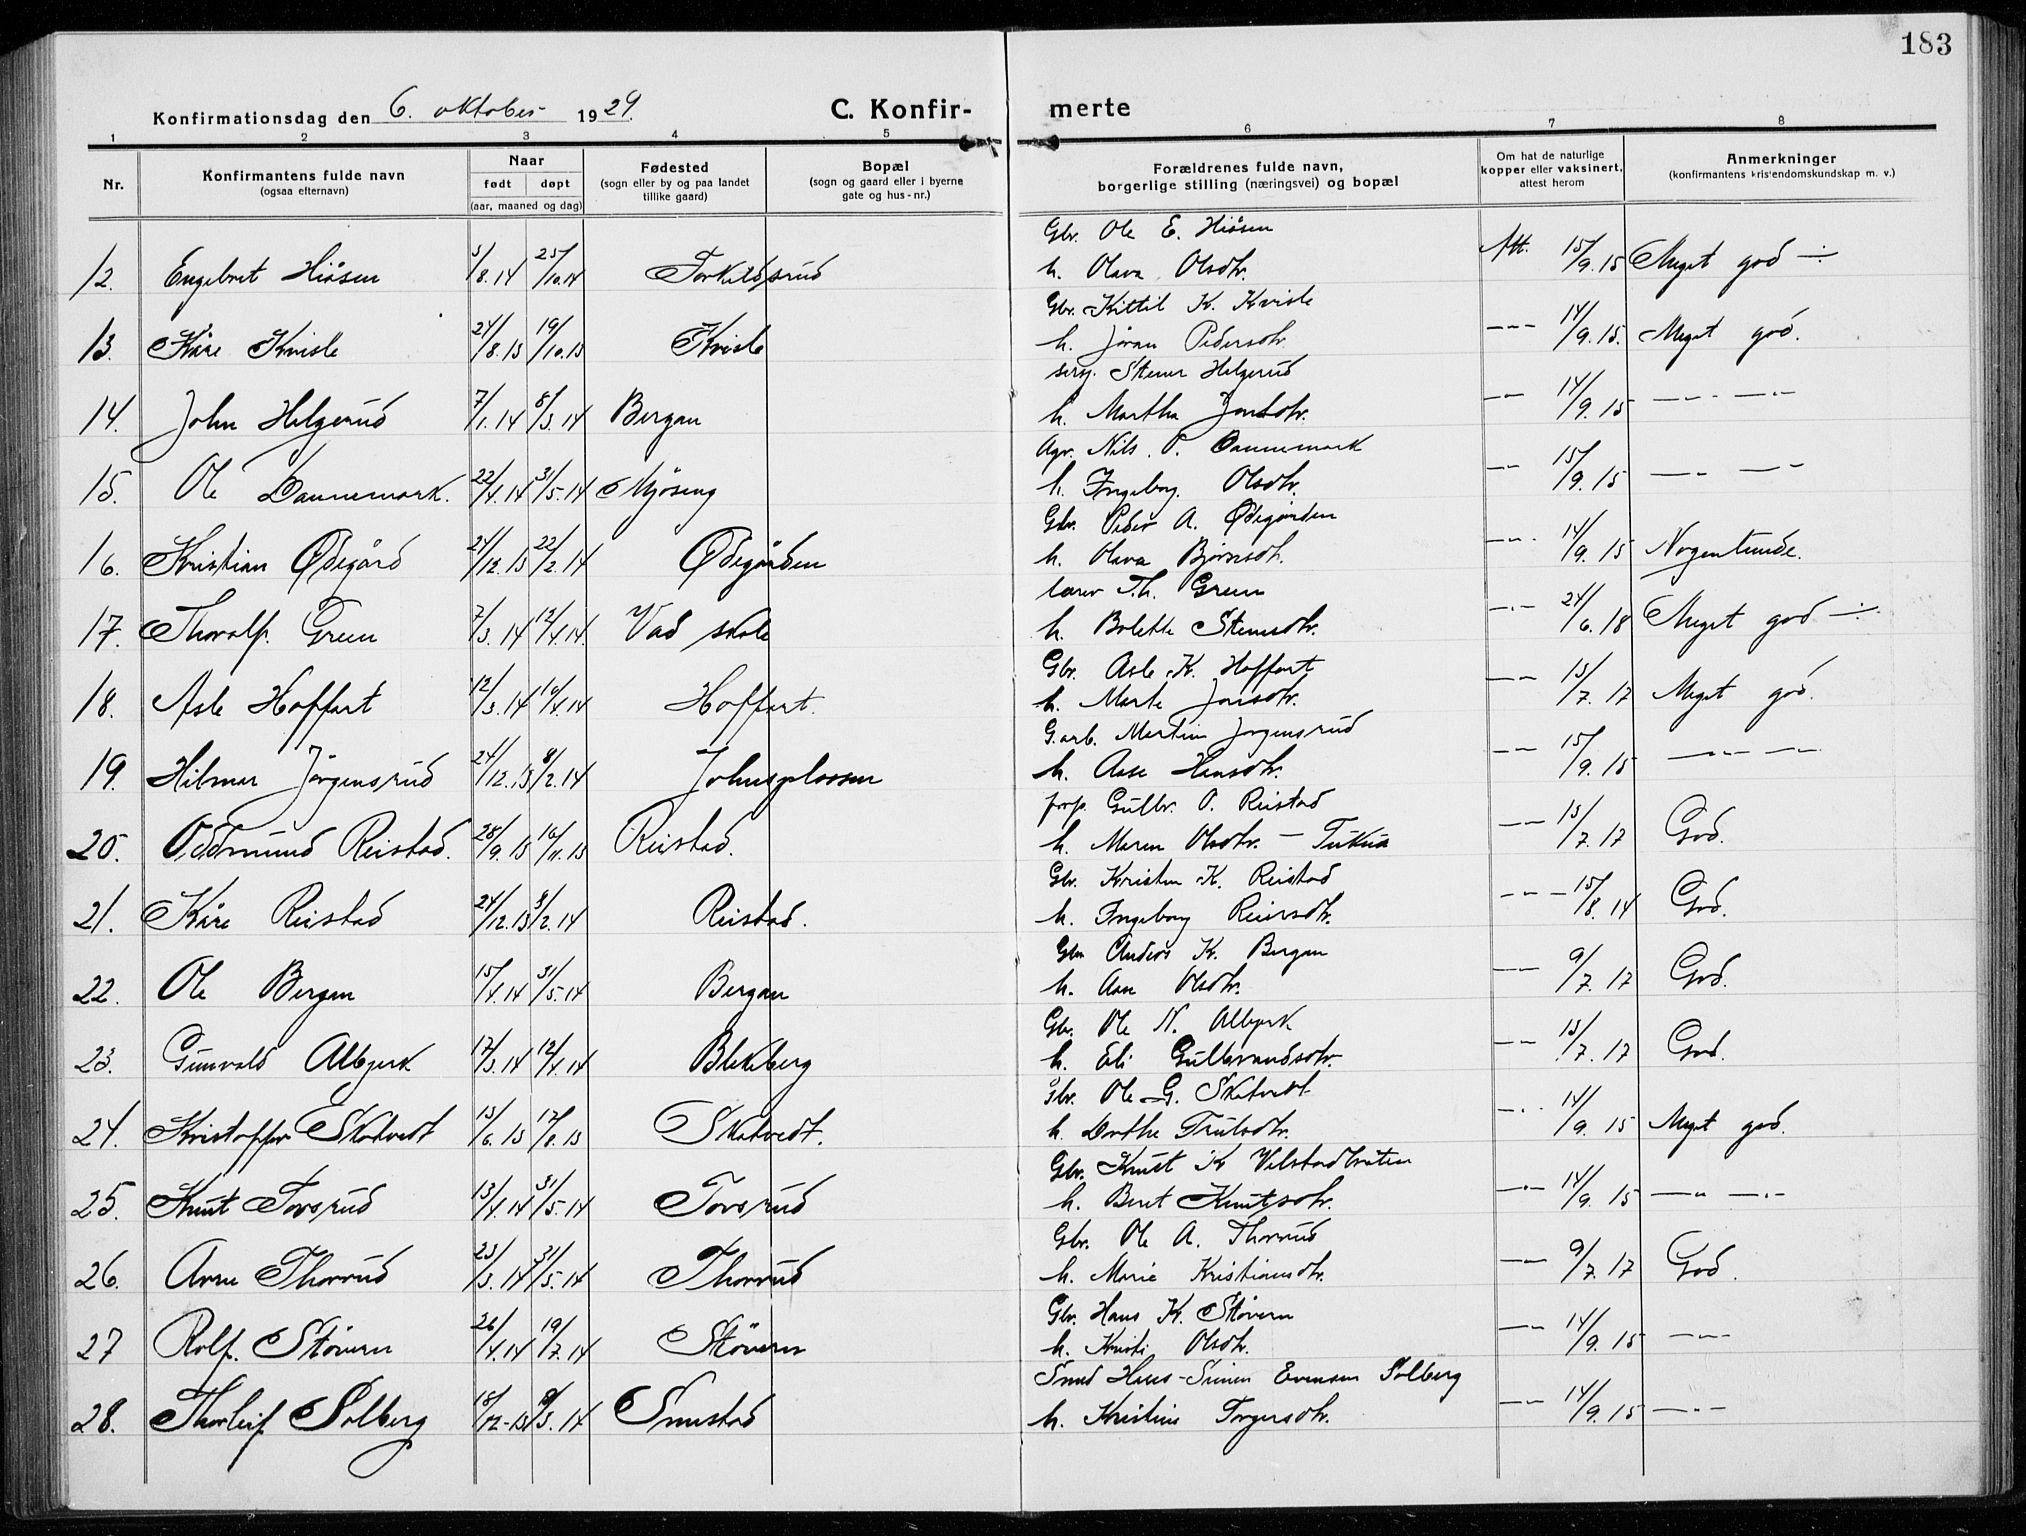 183
Konfirmationsdag den 6. oktober 1929. C. Konfirmerte
1 2 3 4 5 6 7 8
Nr. Konfirmantens fulde navn (ogsaa efternavn) Naar født døpt (aar, maaned og dag) Fødested (sogn eller by og paa landet tillike gaard) Bopæl (sogn og gaard eller i byerne gate og hus-nr.) Forældrenes fulde navn, borgerlige stilling (næringsvei) og bopæl Om hat de naturlige kopper eller vaksinert, attest herom Anmerkninger (konfirmantens kristendomskundskap m. v.)
Gbr. Ole E. Hiåsen
12. Engebret Hiåsen 5/8.14 25/10.14 Torkildsrud h. Olava Olsdtr. Att. 15/9.15 Meget god -:-
Gbr. Kittil K. Kvisle
13. Kåre Kvisle 24/8.13 19/10.13 Kvisle h. Jöran Pedersdtr. --- 14/9.15. Meget god.
sersj. Stener Helgerud
14. John Helgerud 7/1.14 8/3.14 Bergan h. Martha Jonsdtr. -- 14/9.15 —-.-—
Agr. Nils O. Dannemark
15. Ole Dannemark. 22/4.14 31/5.14 Mjöseng h. Ingeborg Olsdtr. -- 15/9.15 —- —-
Gbr. Peder A. Ødegården
16. Kristian Ødegård 24/12.13 22/2.14 Ødegården h. Olava Björnsdtr. --. 14/9.15 Nogenlunde.
lærer Th. Green
17. Thoralf Green 7/3.14 12/4.14. Vad skole h. Bolette Stensdtr. -.- 24/6.18 Meget god -:-
Gbr. Asle K. Hoffart
18. Asle Hoffart 12/3.14 10/4.14 Hoffart. h. Marte Jonsdtr. --- 13/7.17 Meget god.
G.arb. Martin Jörgensrud
19. Hilmar Jörgensrud 24/12.13 8/2.14 Johnsplassen h. Aase Hansdtr. -- 15/9.15 —----
forp. Gullbr. O. Reistad
20. Oddmund Reistad. 28/9.13 16/11.13 Reistad. h. Maren Olsdtr. — --- 13/7.17 God.
Gbr. Kristen K. Reistad
21. Kåre Reistad 24/12.13 8/2.14 Reistad. h. Ingeborg Reiersdtr. --- 15/8.14 God.
Gbr. Anders K. Bergan
22. Ole Bergan 15/4.14 31/5.14 Bergan h. Aase Olsdtr. --- 9/7.17 God.
Gbr. Ole N. Albjerk
23. Gunvald Albjerk 17/3.14 12/4.14 Blekeberg h. Eli Gulbrandsdtr. -- 13/7.17 God.
Gbr. Ole G. Skatvedt
24. Kristoffer Skatvedt 13/6.13 17/8.13 Skatvedt. h. Dorthe Trulsdtr. -.- 14/9.15 Meget god.
Gbr. Knut K. Velstadbråten
25. Knut Torsrud 13/4.14 31/5.14 Torsrud h. Beret Knutsdtr. -.- 14/9.15 —-—.-
Gbr. Ole A. Thorrud
26. Arne Thorrud 23/3.14 31/5.14 Thorrud h. Marie Kristiansdtr. --- 9/7.17 God.
Gbr. Hans K. Støveren
27 Rolf Støveren 26/4.14 19/7.14 Støveren h. Kristi Olsdtr. --- 14/9.15 ---
Smed Hans-Simen Evensen Solberg
28. Thorleif Solberg 18/12-13 8/3.14 Smestad h. Kristine Torgersdtr. --- 14/9.15 —.-